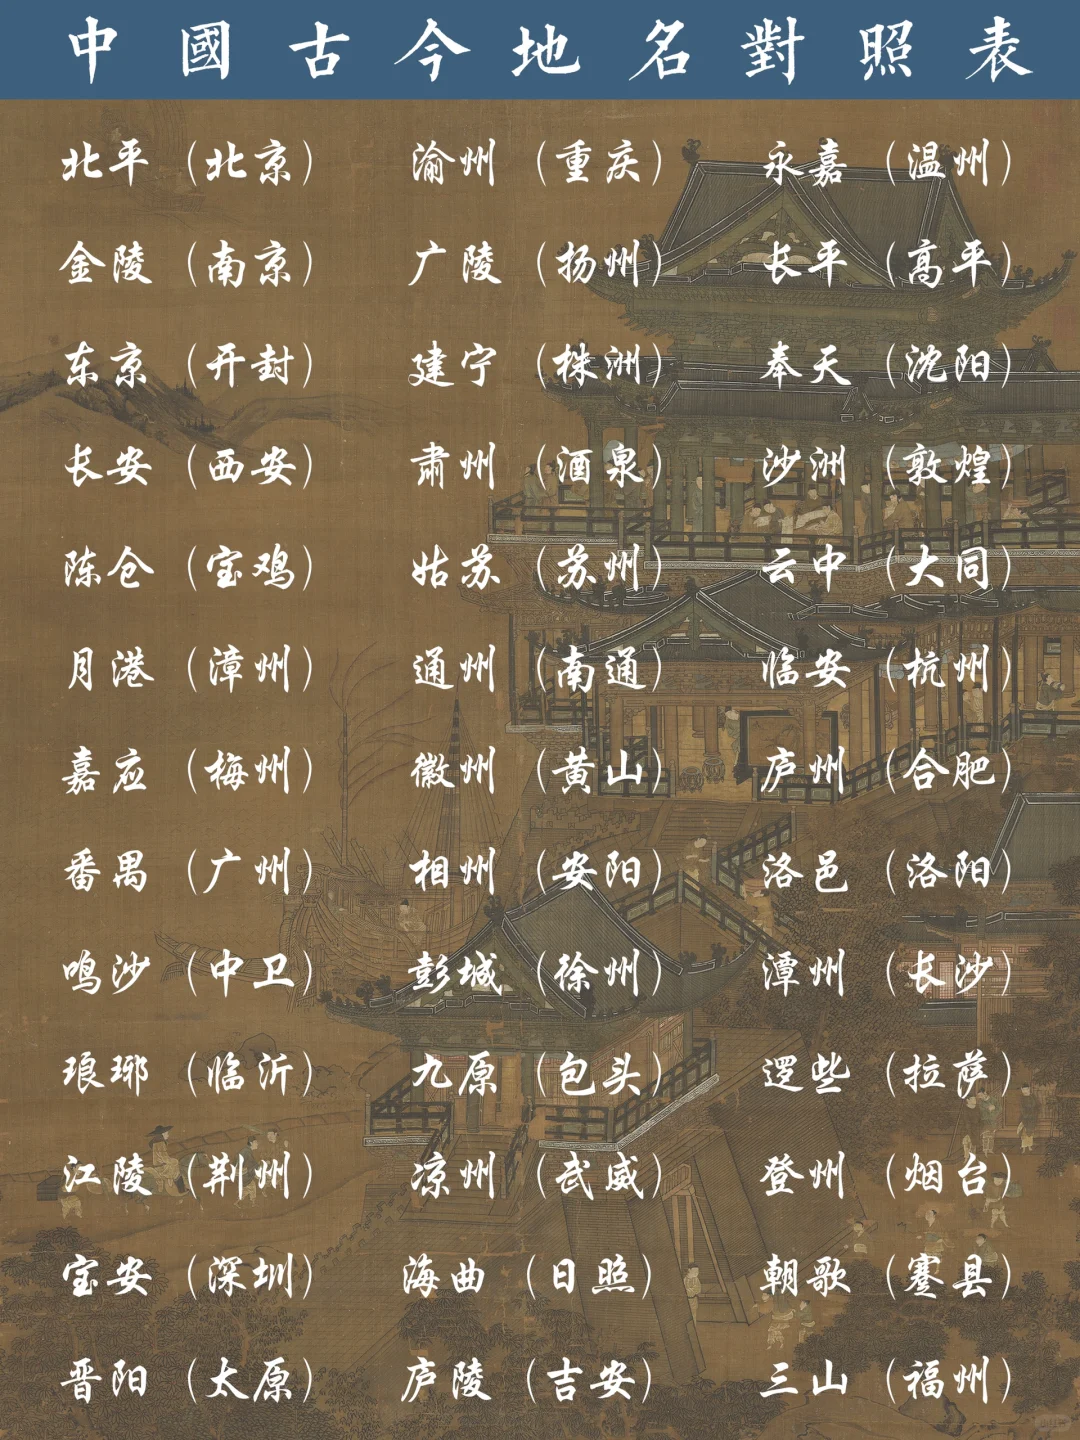 中國古今地名對照表
北平（北京） 渝州（重庆） 永嘉（温州）
金陵（南京） 广陵（扬州） 长平（高平）
东京（开封） 建宁（株洲） 奉天（沈阳）
长安（西安） 肃州（酒泉） 沙洲（敦煌）
陈仓（宝鸡） 姑苏（苏州） 云中（大同）
月港（漳州） 通州（南通） 临安（杭州）
嘉应（梅州） 徽州（黄山） 庐州（合肥）
番禺（广州） 相州（安阳） 洛邑（洛阳）
鸣沙（中卫） 彭城（徐州） 潭州（长沙）
琅琊（临沂） 九原（包头） 逻些（拉萨）
江陵（荆州） 凉州（武威） 登州（烟台）
宝安（深圳） 海曲（日照） 朝歌（蹇县）
晋阳（太原） 庐陵（吉安） 三山（福州）